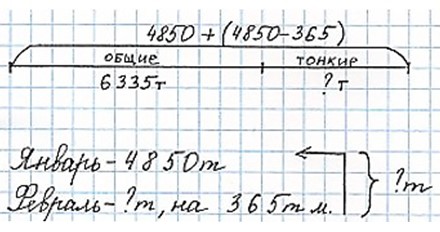 4850 + (4850-365)
общие тонкие
6335т ? т
Январь - 4850т
Февраль - ?т, на 365т м. ?т